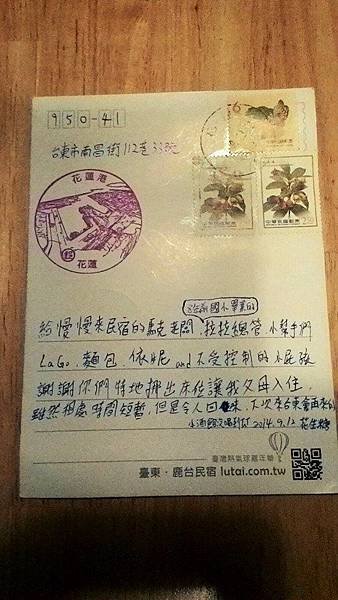 950-41
台東市南昌街112巷33號
花蓮港
花蓮
中華民國郵票
給慢慢來民宿的馬克老闆、拉拉總管、小幫手們
國小畢業的
LaGo、麵包、依妮 and 不受控制的小屁孩
謝謝你們特地挪出床位讓我父母入住,
雖然相處時間短暫,但是令人回味,下次來台東會再來的
2014.9.12
臺灣熱氣球嘉年華
臺東・鹿台民宿 lutai.com.tw